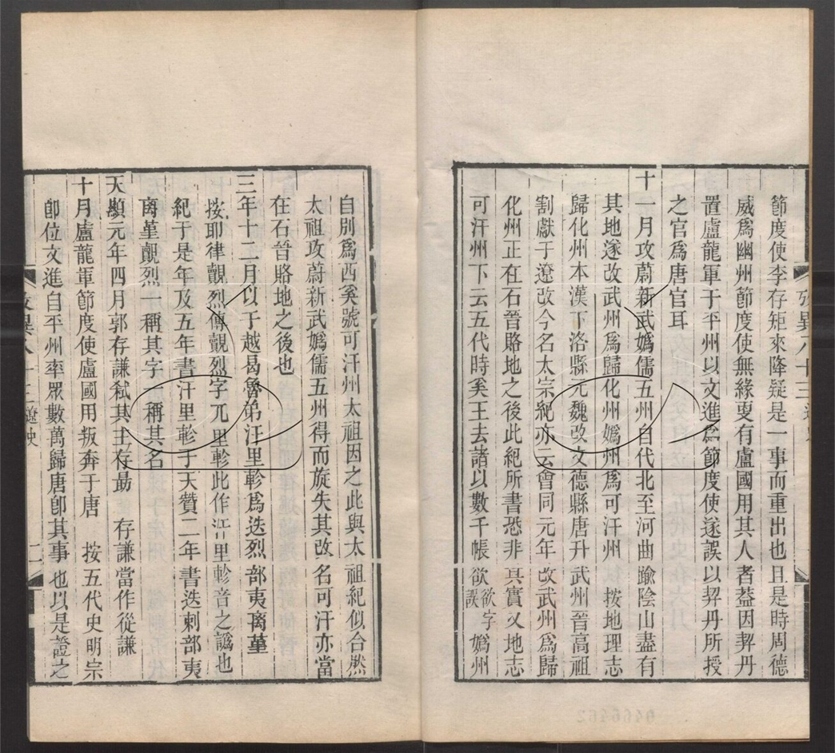 節度使李存矩來降疑是一事而重出也且是時周德
威爲幽州節度使無緣更有盧國用其人者葢因契丹
置盧龍軍于平州以文進爲節度使遂誤以契丹所授
之官爲唐官耳
十一月攻蔚新武嬀儒五州自代北至河曲踰陰山盡有
其地遂改武州爲歸化州嬀州爲可汗州 按地理志
歸化州本漢下洛縣元魏改文德縣唐升武州晉高祖
割獻于遼改今名太宗紀亦云會同元年改武州爲歸
化州正在石晉賂地之後此紀所書恐非其實又地志
可汗州下云五代時奚王去諸以數千帳欲欲字誤嬀州
自別爲西奚號可汗州太祖因之此與太祖紀似合然
太祖攻蔚新武嬀儒五州得而旋失其改名可汗亦當
在石晉賂地之後也
三年十二月以于越曷魯弟汙里軫爲迭烈部夷离堇
按耶律覿烈傳覿烈字兀里軫此作汙里軫音之譌也
紀于是年及五年書汙里軫于天贊二年書迭剌部夷
离堇覿烈一稱其字一稱其名
天顯元年四月郭存謙弑其主存勗 存謙當作從謙
十月盧龍軍節度使盧國用叛奔于唐 按五代史明宗
卽位文進自平州率眾數萬歸唐卽其事也以是證之
二